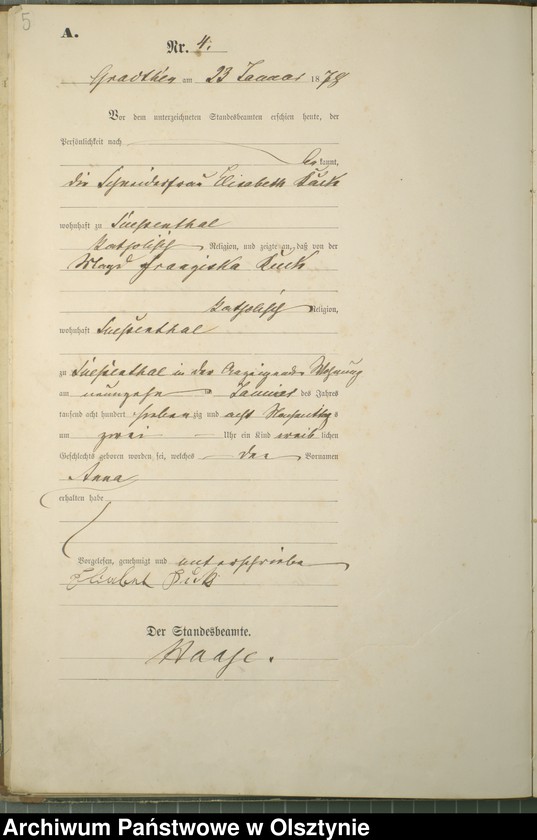 5
A.
Nr. 4.
am 23 Januar 1878
Vor dem unterzeichneten Standesbeamten erschien heute, der
Persönlichkeit nach
be kannt,
die Schneiderfrau Elisabeth
wohnhaft zu
katholisch Religion, und zeigte an, daß von der
Magd Franziska
katholisch Religion,
wohnhaft
zu in der Wohnung
am neunzehn ten Januar des Jahres
tausend acht hundert sieben zig und acht Nachmittags
um zwei Uhr ein Kind weib lichen
Geschlechts geboren worden sei, welches den Vornamen
Anna
erhalten habe
Vorgelesen, genehmigt und unterschrieben
Elisabet
Der Standesbeamte.
Haase.
Archiwum Państwowe w Olsztynie